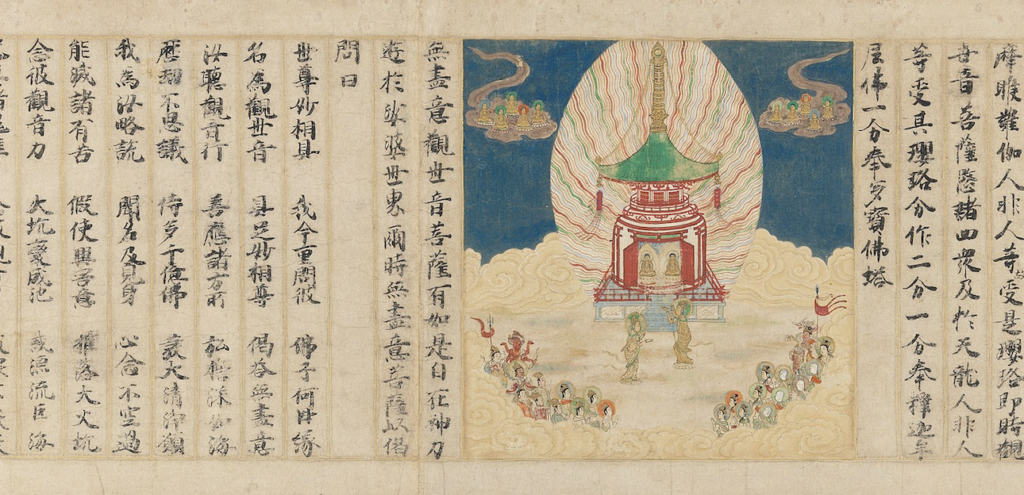 摩睺羅伽人非人等受是瓔珞即時觀
世音菩薩愍諸四衆及於天龍人非人
等受其瓔珞分作二分一分奉釋迦牟
尼佛一分奉多寶佛塔
無盡意觀世音菩薩有如是自在神力
遊於娑婆世界爾時無盡意菩薩以偈
問曰
世尊妙相具 我今重問彼 佛子何因緣
名為觀世音 具足妙相尊 偈答無盡意
汝聽觀音行 善應諸方所 弘誓深如海
歷劫不思議 侍多千億佛 發大清淨願
我為汝略說 聞名及見身 心念不空過
能滅諸有苦 假使興害意 推落大火坑
念彼觀音力 火坑變成池 或漂流巨海